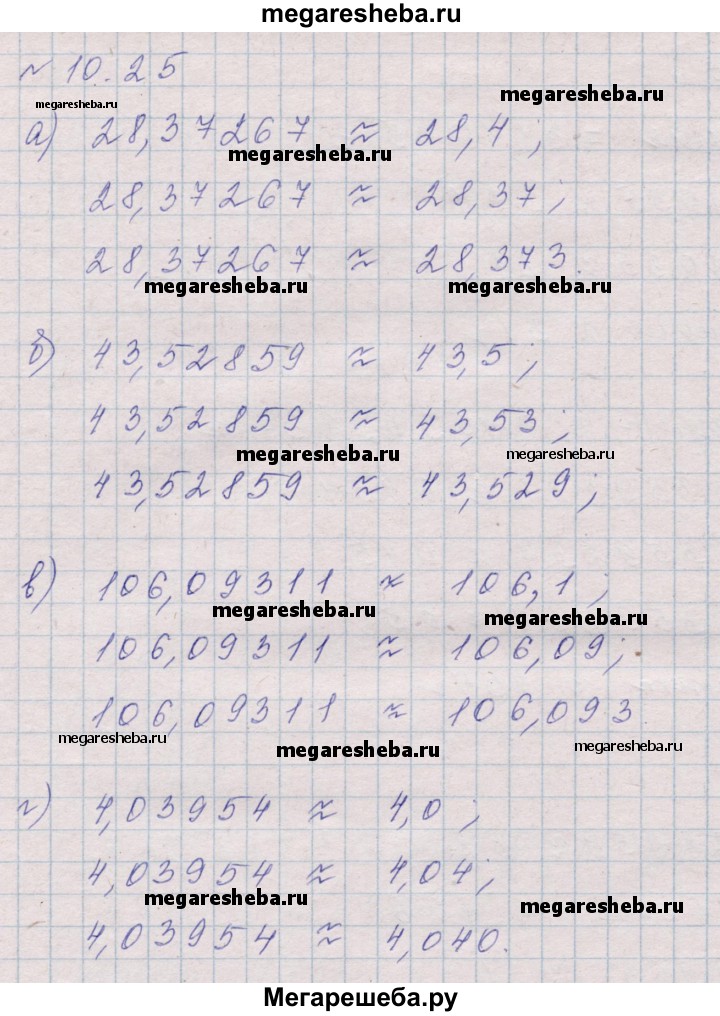 megaresheba.ru
№ 10.25
megaresheba.ru
megaresheba.ru
а) 28,37267 ≈ 28,4;
megaresheba.ru
28,37267 ≈ 28,37;
28,37267 ≈ 28,373.
megaresheba.ru megaresheba.ru
б) 43,52859 ≈ 43,5;
43,52859 ≈ 43,53;
megaresheba.ru megaresheba.ru
43,52859 ≈ 43,529;
в) 106,09311 ≈ 106,1;
megaresheba.ru megaresheba.ru
106,09311 ≈ 106,09;
106,09311 ≈ 106,093
megaresheba.ru megaresheba.ru megaresheba.ru
г) 4,03954 ≈ 4,0;
4,03954 ≈ 4,04;
megaresheba.ru megaresheba.ru
4,03954 ≈ 4,040.
Мегарешеба.ру